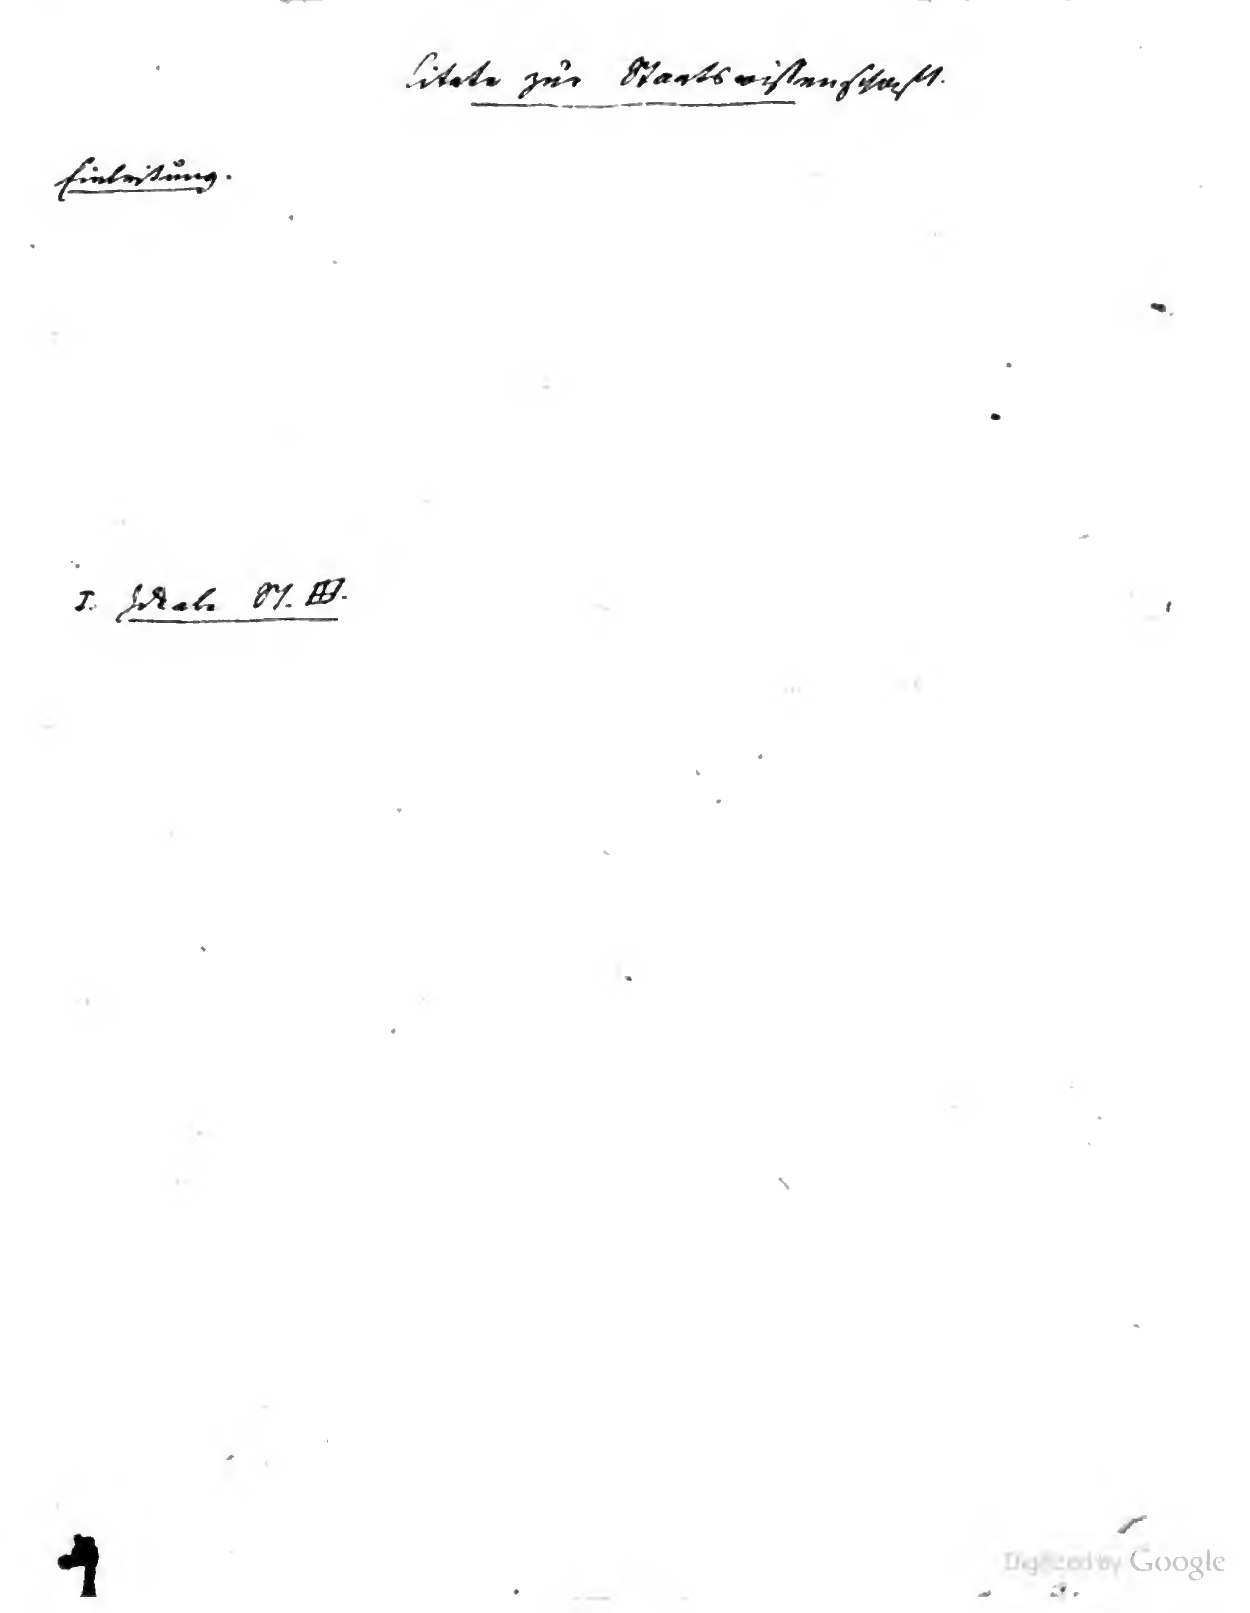 Citate zur Staatswissenschaft.
Einleitung.
I. Ideale St. III.
Digitized by Google